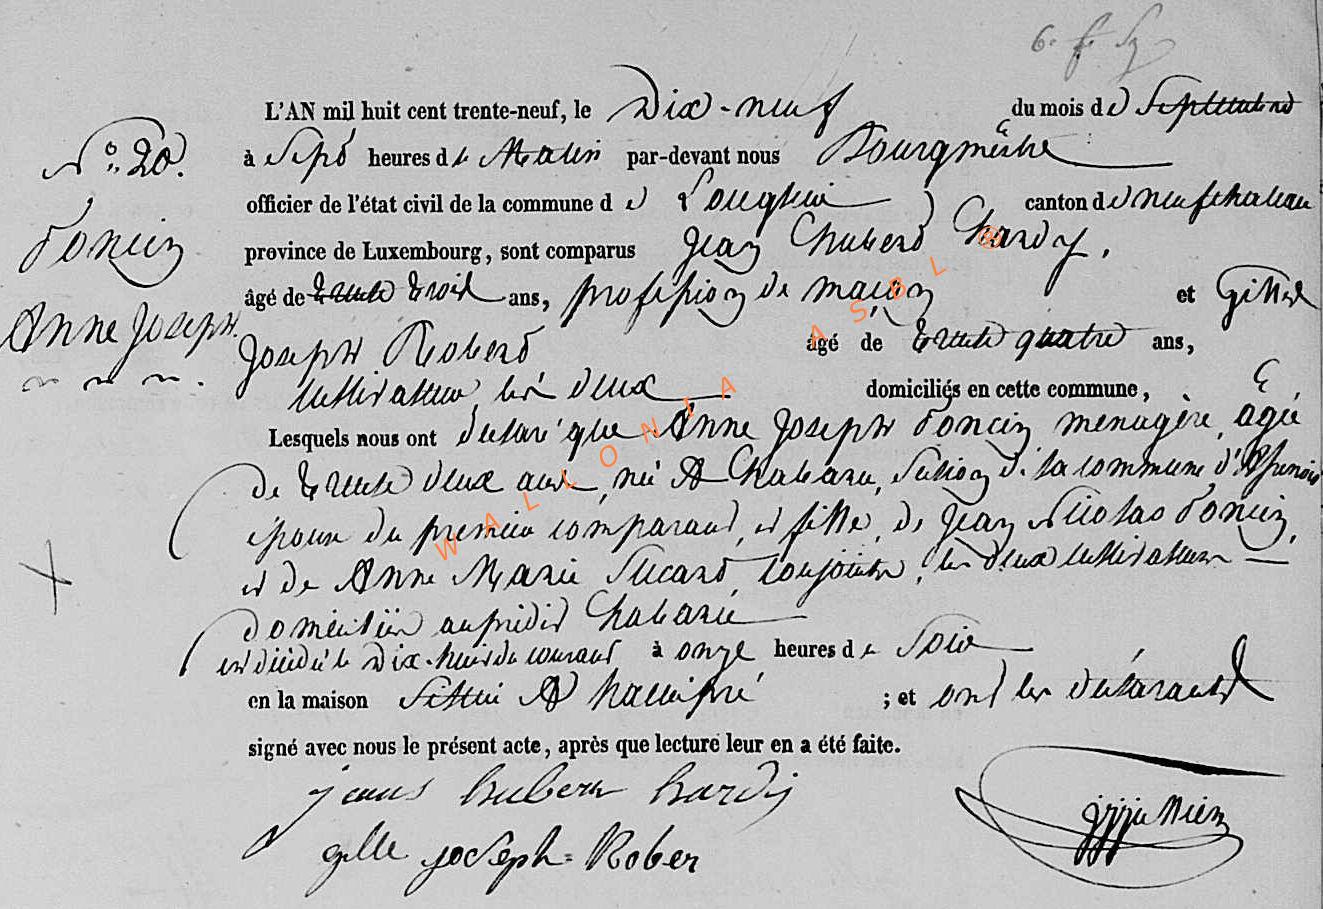 N° 20.
Poncin
Anne Joseph
L'AN mil huit cent trente-neuf, le Dix-neuf du mois de Septembre
à Sept heures du Matin par-devant nous Bourgmestre
officier de l'état civil de la commune de Longlier canton de neufchateau
province de Luxembourg, sont comparus Jean Hubert Hardy,
âgé de trente trois ans, profession de maçon et Gilles
Joseph Robert âgé de trente quatre ans,
cultivateur, les deux domiciliés en cette commune,
Lesquels nous ont déclaré que Anne Joseph Poncin menagère, âgée
de trente deux ans, née A Chabarie, Section de la commune d'
épouse du premier comparant, et fille de Jean Nicolas Poncin,
et de Anne Marie conjoints, les deux cultivateurs
domiciliés au predit Chabarie
est décédée le Dix-huit du courant à onze heures du Soir
en la maison Sittuée A hamipré ; et ont les déclarants
signé avec nous le présent acte, après que lecture leur en a été faite.
jeans huberts hardy
gille joseph Rober
WALLONIA ASBL ®